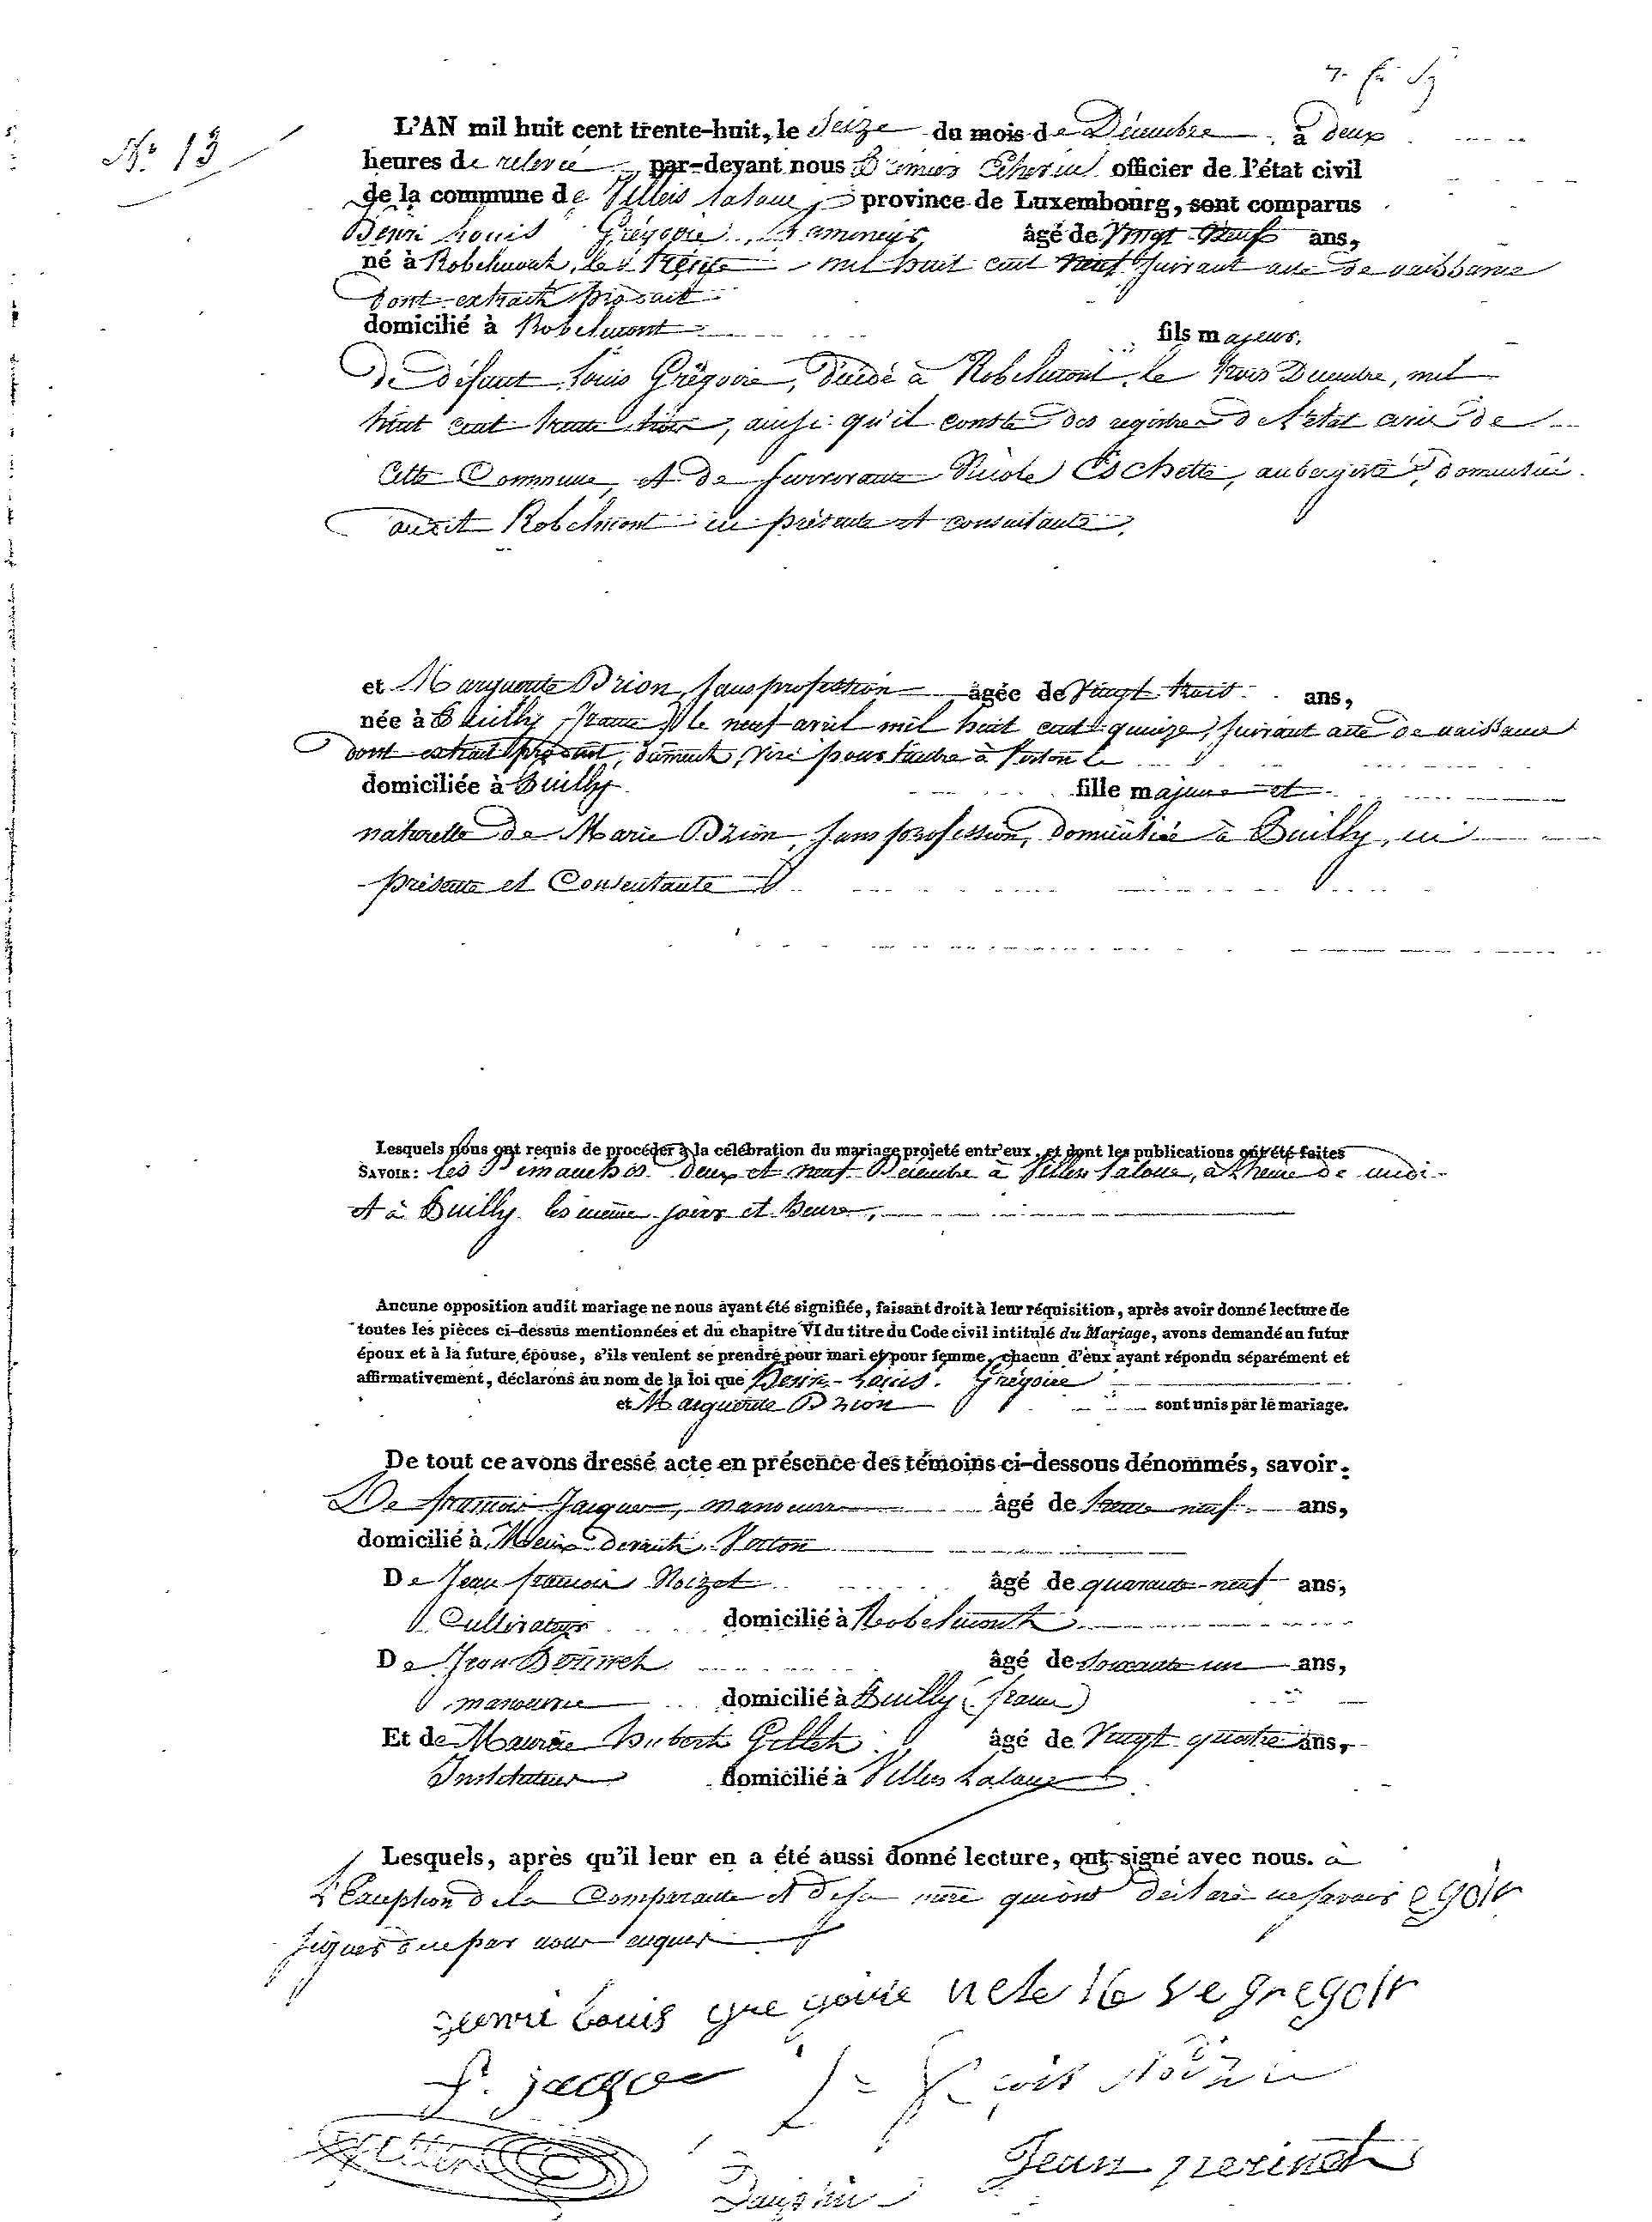 N.º 13
L'AN mil huit cent trente-huit, le Seize du mois de Décembre à deux
heures de relevée par-devant nous officier de l'état civil
de la commune de Villers laloue, province de Luxembourg, sont comparus
Henri Louis Grégoire, âgé de Vingt Neuf ans,
né à Robelmont, le mil huit cent neuf suivant acte de naissance
dont extrait produit
domicilié à Robelmont fils majeur,
De défunt Louis Grégoire, décédé à Robelmont, le trois Décembre, mil
huit cent trente ainsi qu'il conste des registres de l'état civil de
Cette Commune, et de survivante Nicole Eschette, aubergiste, domiciliée
audit Robelmont ici présente et consentante,
et Marguerite Drion, sans profession âgée de Vingt trois ans,
née à Builly france le neuf avril mil huit cent quinze, suivant acte de naissance
dont extrait produit, dûment visé pour timbre à Virton le
domiciliée à Builly fille majeure et
naturelle de Marie Drion, sans profession, domiciliée à Builly, ici
présente et Consentante
Lesquels nous ont requis de procéder à la célébration du mariage projeté entr'eux, et dont les publications ont été faites
SAVOIR : les Dimanches deux et neuf Décembre à Villers laloue, à l'heure de midi
et à Builly les même jours et heure,
Aucune opposition audit mariage ne nous ayant été signifiée, faisant droit à leur réquisition, après avoir donné lecture de
toutes les pièces ci-dessus mentionnées et du chapitre VI du titre du Code civil intitulé du Mariage, avons demandé au futur
époux et à la future épouse, s'ils veulent se prendre pour mari et pour femme, chacun d'eux ayant répondu séparément et
affirmativement, déclarons au nom de la loi que Henri-Louis Grégoire
et Marguerite Drion sont unis par le mariage.
De tout ce avons dressé acte en présence des témoins ci-dessous dénommés, savoir :
De françois Jacques, manoeuvre âgé de trente neuf ans,
domicilié à Meix devant Virton
De Jean françois Noizet âgé de quarante-neuf ans,
Cultivateur domicilié à Robelmont
De Jean âgé de Soixante un ans,
manoeuvre domicilié à Builly (france)
Et de Maurice hubert Gillet âgé de Vingt quatre ans,
Instituteur domicilié à Villers laloue
Lesquels, après qu'il leur en a été aussi donné lecture, ont signé avec nous. à
L'Exception de la Comparante et de sa mère qui ont déclaré ne savoir
signer de ce par nous enquis
henri Louis gregoire ve gregoir
f. jacque
Jean perinet